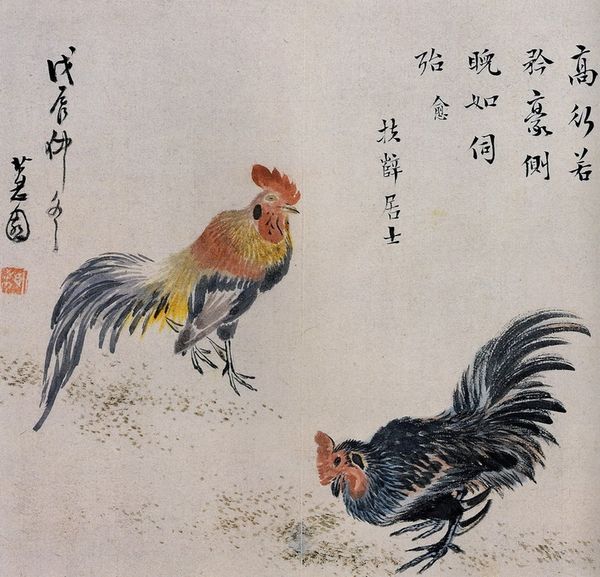 高行若
矜豪側
睨如伺
殆 愈
扶辥居士
戊辰仲冬
蕙園